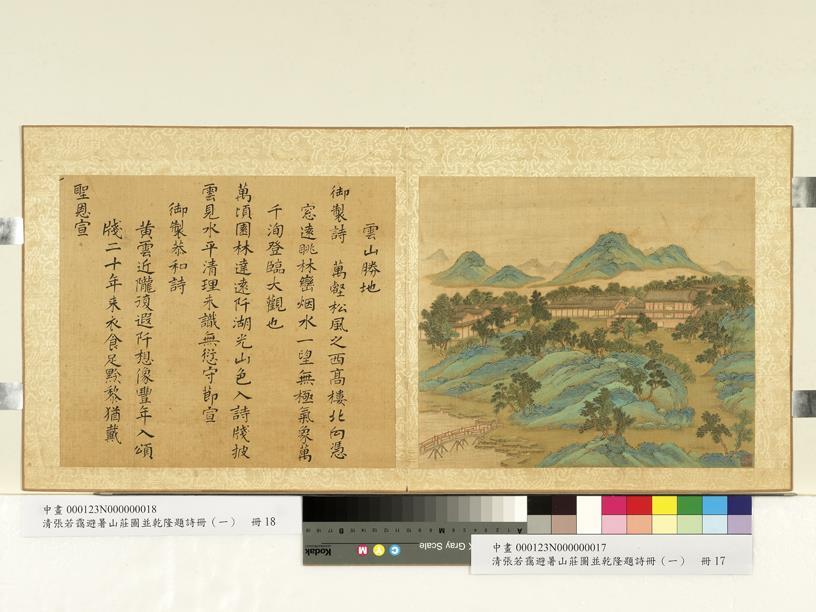 雲山勝地
御製詩 萬壑松風之西高樓北向憑
窓遠眺林巒烟水一望無極氣象萬
千洵登臨大觀也
萬頃園林達遠阡湖光山色入詩牋披
雲見水平清理未識無愆守節宣
御製恭和詩
黃雲近隴復遐阡想像豐年入頌
牋二十年来衣食足黔黎猶戴
聖恩宣
中畫 000123N000000018
清張若靄避暑山莊圖並乾隆題詩冊（一） 冊 18
Kodak
Gray Scale
C Y M
中畫 000123N000000017
清張若靄避暑山莊圖並乾隆題詩冊（一） 冊 17